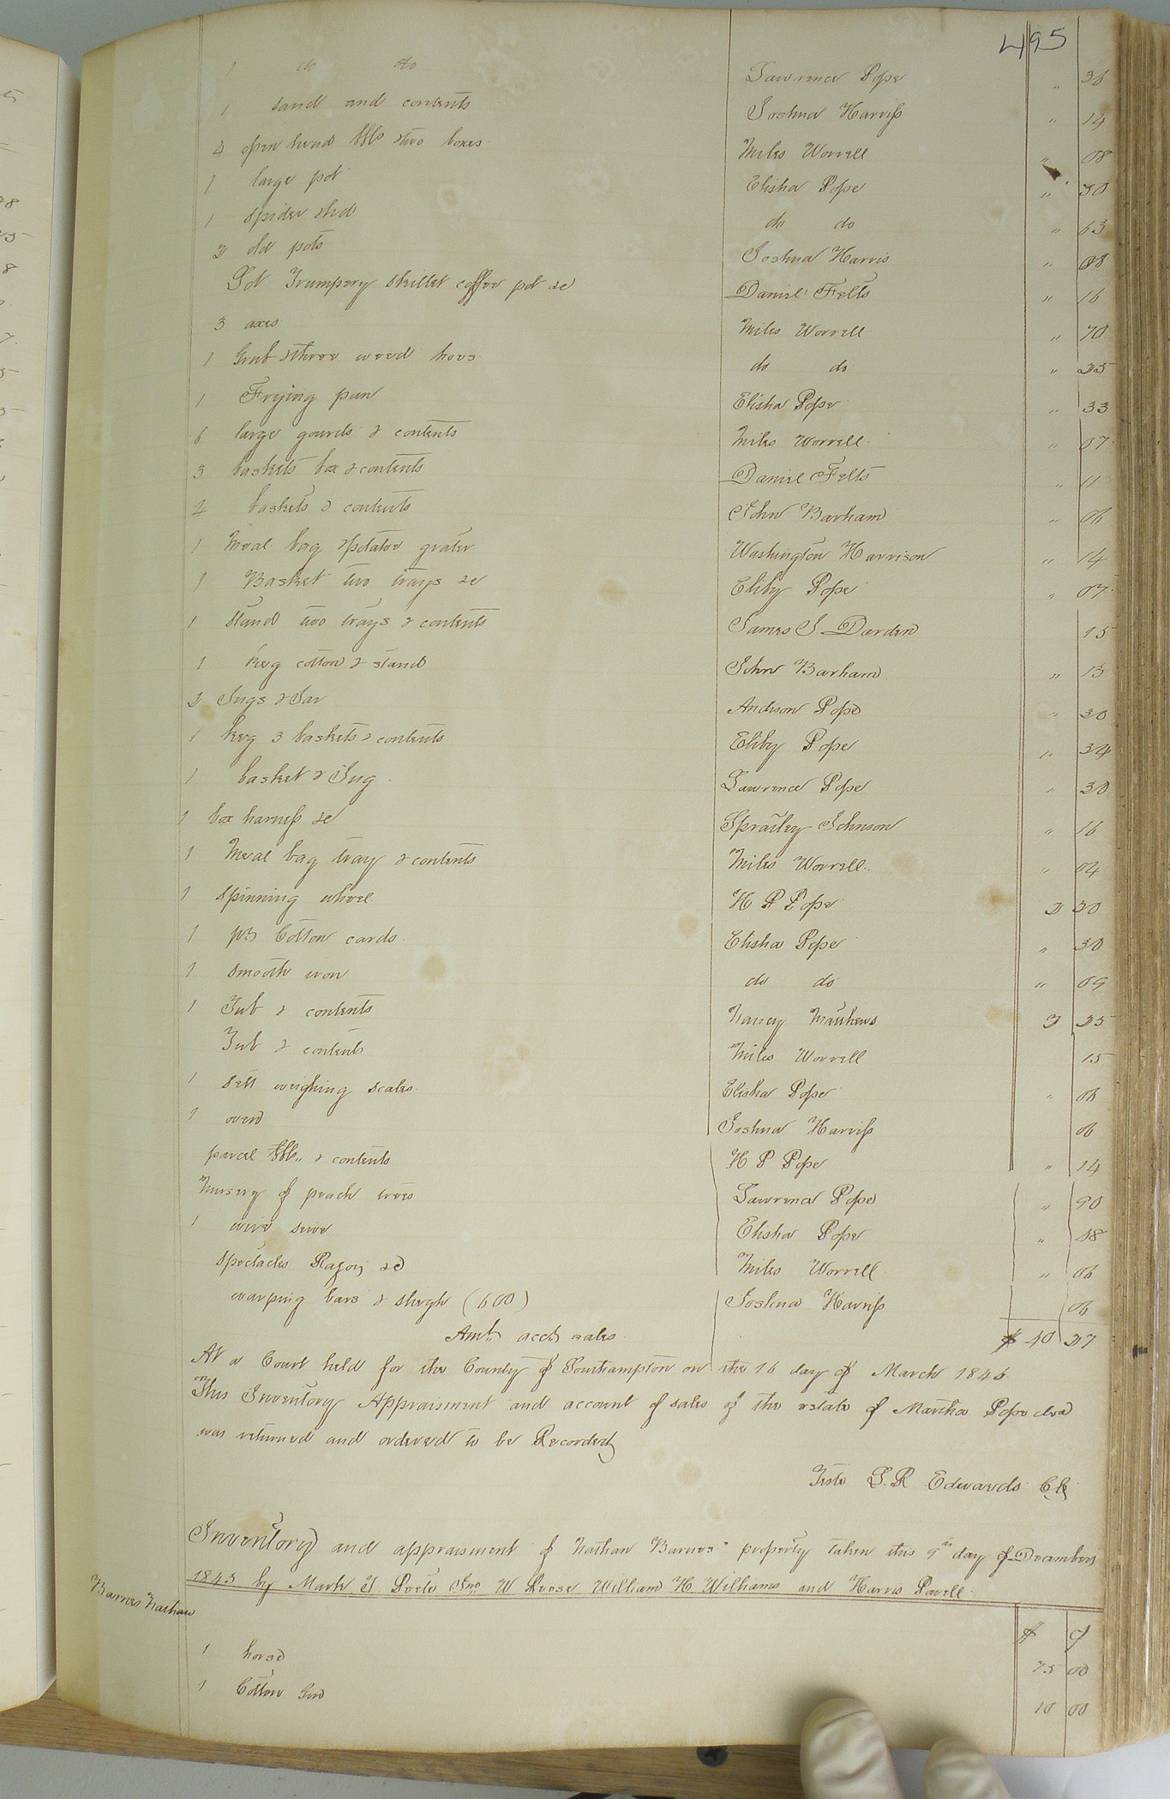 495
1 do do Lawrence Pope " 36
1 stand and contents Joshua Harriss " 14
4 open head bbls & two boxes Miles Worrell " 08
1 large pot Elisha Pope " 30
1 spider & lid do do " 63
2 old pots Joshua Harris " 08
Lot Trumpery skillet coffee pot &c Daniel Felts " 16
3 axes Miles Worrell " 70
1 Grub & three weed hoes do do " 25
1 Frying pan Elisha Pope " 33
6 large gourds & contents Miles Worrell " 07
3 baskets box & contents Daniel Felts " 11
4 baskets & contents John Barham " 06
1 Meal bag & potatoe grater Washington Harrison " 14
1 Basket two trays &c Eliby Pope " 07
1 Stand two trays & contents James S Darden 15
1 keg cotton & stand John Barham " 13
2 Jugs & Jar Andrson Pope " 30
1 keg 3 baskets & contents Eliby Pope " 34
1 basket & Jug Lawrence Pope " 30
1 box harness &c Spratley Johnson " 16
1 Meal bag tray & contents Miles Worrell " 04
1 spinning wheel H P Pope 2 30
1 pr Cotton cards Elisha Pope " 30
1 smooth iron do do " 09
1 Tub & contents Nancy Matthews 3 25
Tub & contents Miles Worrell 15
1 sett weighing scales Elisha Pope " 06
1 oven Joshua Harriss 06
parcel bbls & contents H P Pope " 14
Nursery of peach trees Lawrence Pope " 90
1 wire sieve Elisha Pope " 48
spectacles Razor &c Miles Worrell " 06
warping bars & sleigh (600) Joshua Harriss 06
Amt. acct sales $ 40 27
At a Court held for the County of Southampton on the 16 day of March 1846
This Inventory Appraisment and account of sales of the estate of Martha Pope decd
was returned and ordered to be Recorded
Teste L. R Edwards Clk
Inventory and appraisment of Nathan Barnes' property taken this 9th day of December
1845 by Mark W Reese William H Williams and Harris Powell
Barnes Nathan
$ c
1 horse 75 00
1 Cotton Gin 10 00